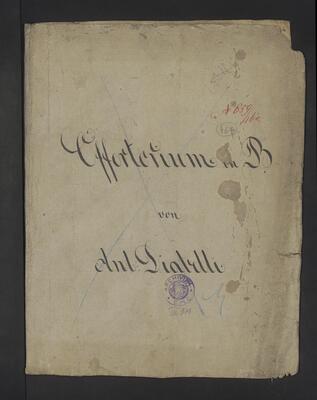 Offertorium in B
von
Ant. Diabelli